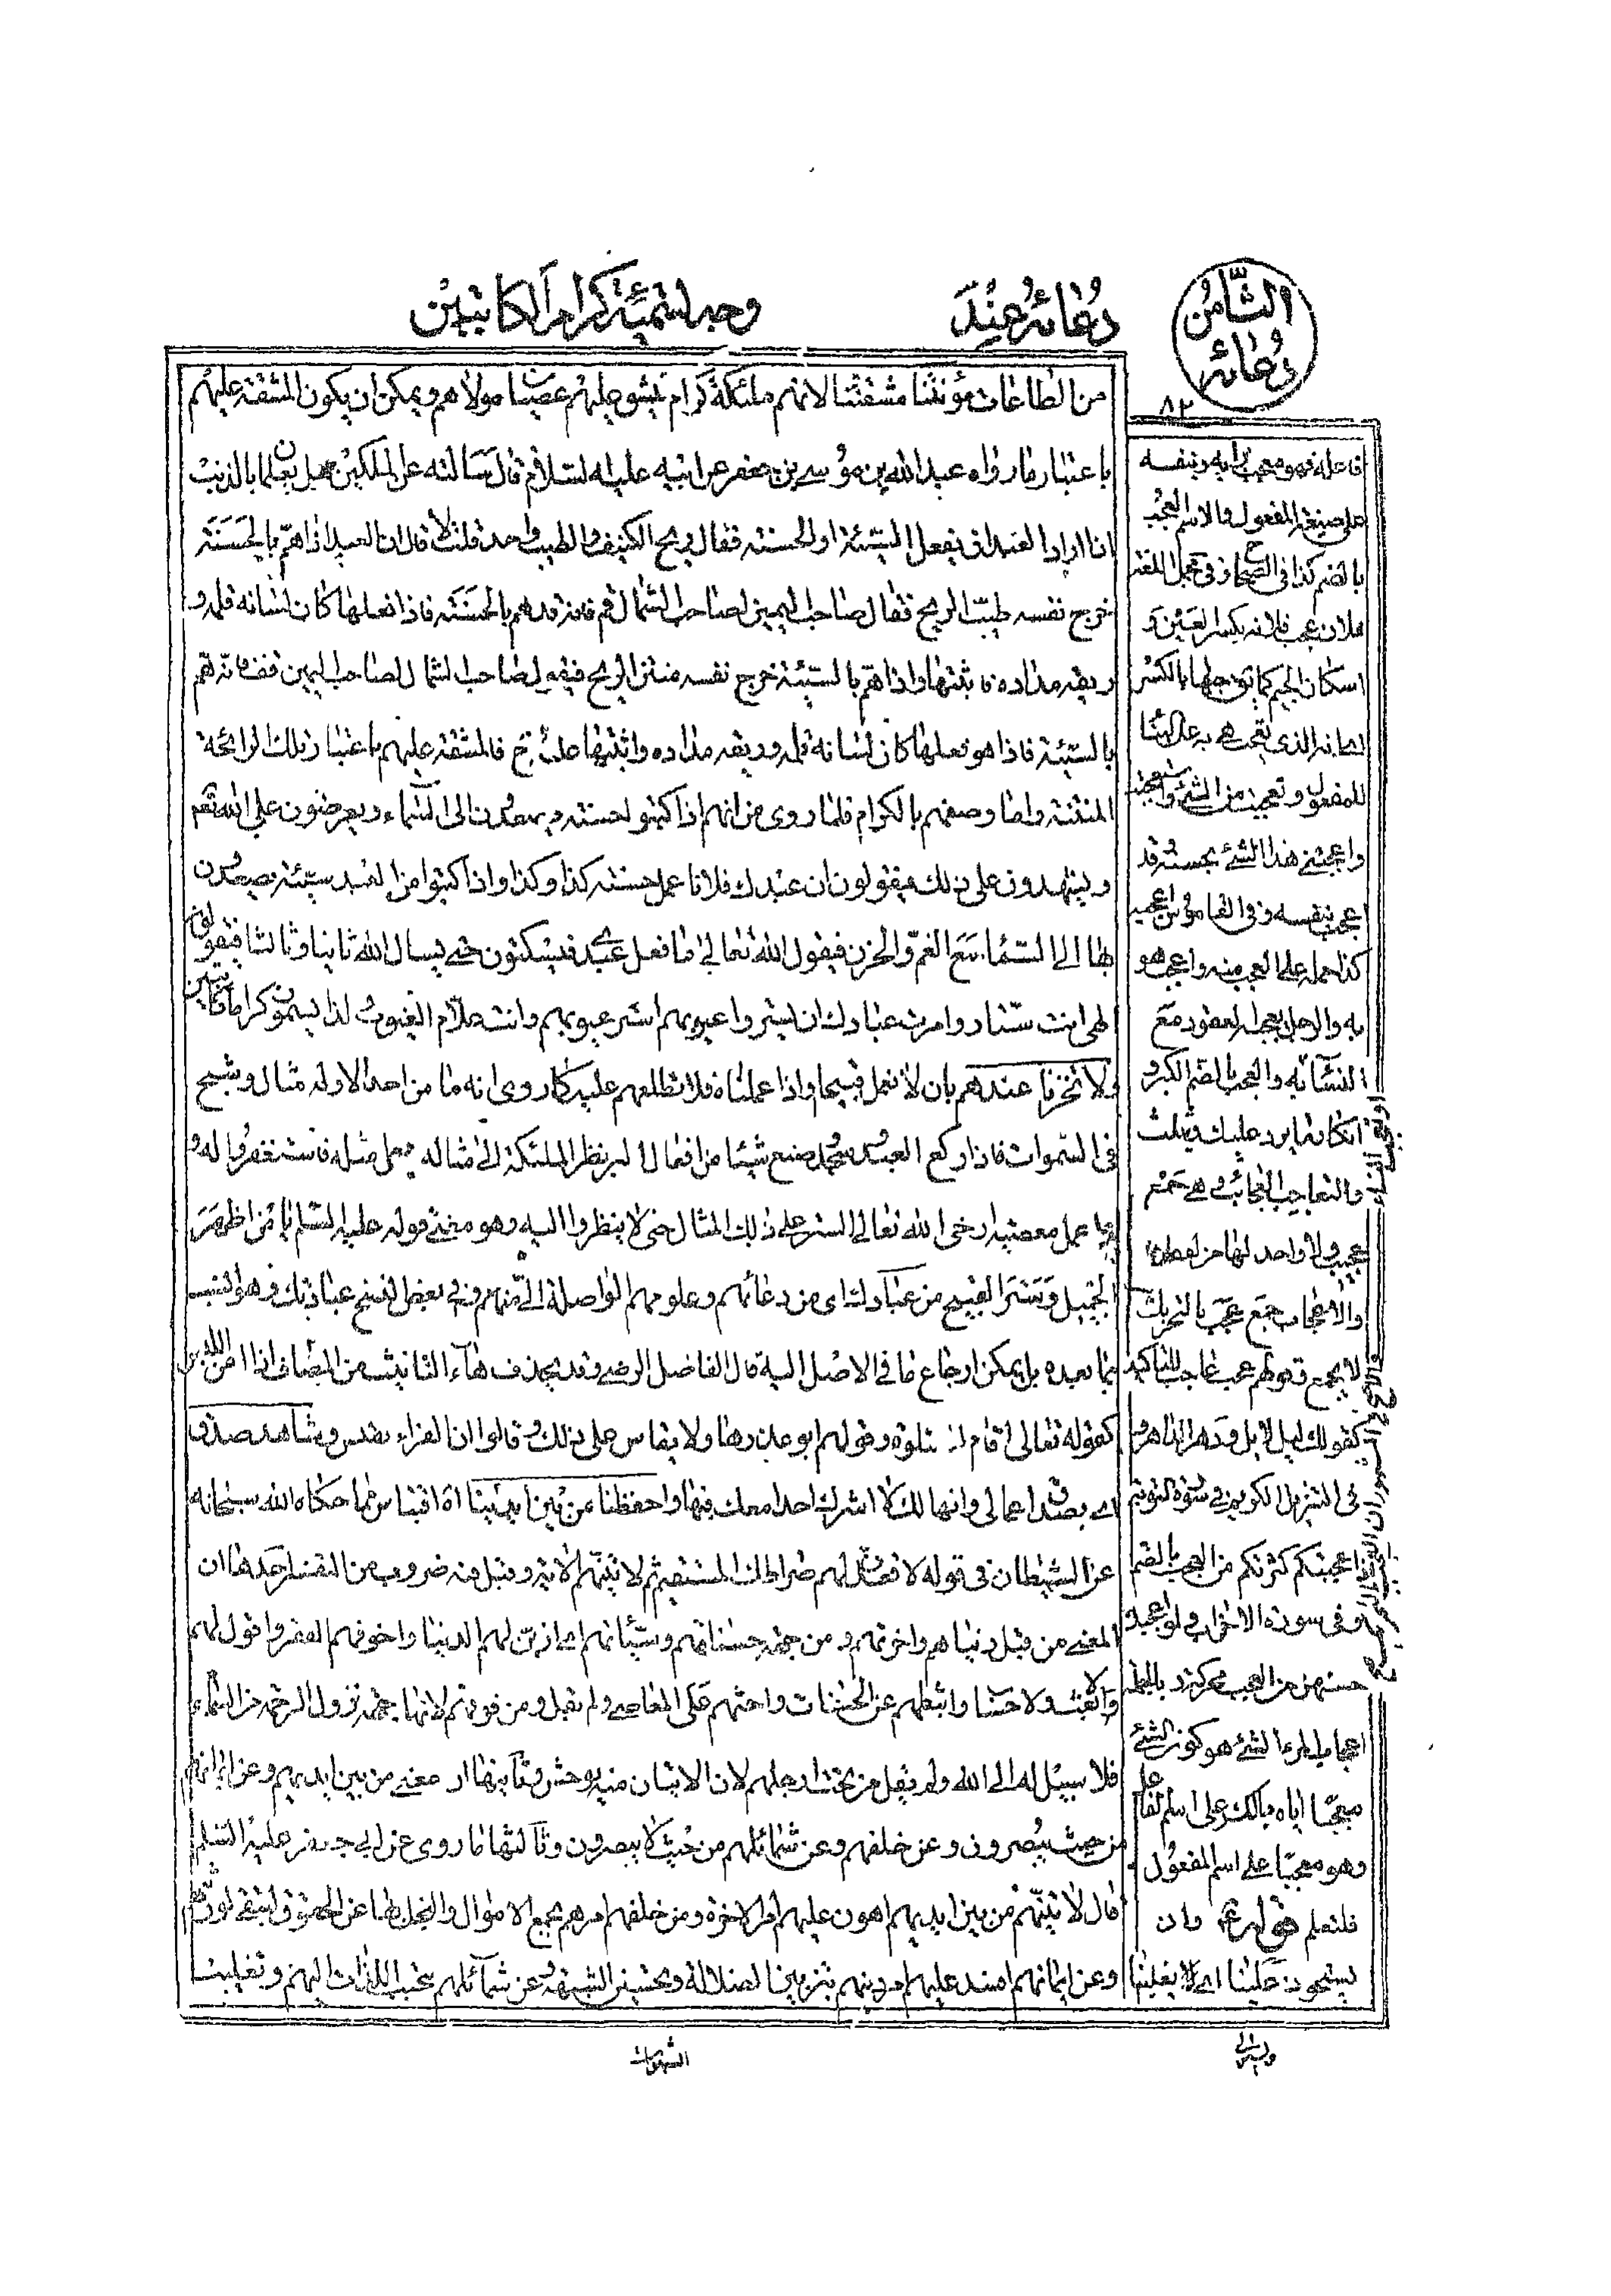 الثامن
دعائه
دعائه عند
وجه تسمية كرام الكاتبين
٨٢
من الطاعات مؤنثنا مشقتنا لانهم ملئكة كرام يشق عليهم عصيان مولاهم ويمكن ان يكون المشقة عليهم
باعتبار ما رواه عبد الله بن موسى بن جعفر عن ابيه عليه السلام قال سالته عن الملكين هل يعلمان بالذنب
اذا اراد العبد ان يفعل السيئة او الحسنة فقال ريح الكنيف والطيب واحد قلت لا قال ان العبد اذا هم بالحسنة
خرج نفسه طيب الريح فقال صاحب اليمين لصاحب الشمال قم فانه قد هم بالحسنة فاذا فعلها كان لسانه قلمه و
ريقه مداده فاثبتها واذا هم بالسيئة خرج نفسه منتن الريح فيقول صاحب الشمال لصاحب اليمين قف فانه هم
بالسيئة فاذا هو فعلها كان لسانه قلمه وريقه مداده واثبتها عليه فالمشقة عليهم باعتبار تلك الرائحة
المنتنة واما وصفهم بالكرام فلما روى من انهم اذا كتبوا حسنة يصعدون الى السماء ويعرضون على الله تعم
ويشهدون على ذلك فيقولون ان عبدك فلانا عمل حسنة كذا وكذا واذا كتبوا من العبد سيئة يصعدون
بها الى السماء مع الغم والحزن فيقول الله تعالى ما فعل عبدي فيسكتون حتى يسال الله ثانيا وثالثا فيقولون
الهي انت ستار وامرت عبادك ان يستروا عيوبهم استر عيوبهم وانت علام الغيوب لذا يسمون كراما كاتبين
ولا تخزنا عندهم بان لا نعمل قبيحا واذا عملناه فلا تطلعهم عليه كما روى انه ما من احد الا وله مثال وشبح
في السموات فاذا ركع العبد وسجد وصنع شيئا من افعال البر نظر الملئكة الى مثاله يعمل مثله فاستغفروا له و
اذا عمل معصية ارخى الله تعالى الستر على ذلك المثال حتى لا ينظروا اليه وهو معنى قوله عليه السلم يا من اظهر
الجميل وستر القبيح من عبادك اى من دعائهم وعلومهم الواصلة الى منهم وفي بعض النسخ عبادتك وهو انسب
بما بعده بل يمكن ارجاع ما في الاصل اليه قال الفاضل الرضي وقد يحذف هاء التانيث من المضاف اذا امن اللبس
كقوله تعالى اقام الصلوة وقولهم ابو عذرها ولا يقاس على ذلك وقالوا ان الفراء يقيس وشاهد صدق
اى يصدق اعمالى وانها لك لا اشرك احدا معك فيها واحفظنا من بين ايدينا اه اقتباس مما حكاه الله سبحانه
عن الشيطان في قوله لاقعدن لهم صراطك المستقيم ثم لاتينهم الاية وقيل فيه ضروب من التفسير احدها ان
المعنى من قبل دنياهم واخرتهم ومن جهة حسناتهم وسيئاتهم اى ازين لهم الدنيا واخوفهم الفقر واقول لهم
لا بعث ولا حساب واثبطهم عن الحسنات واحثهم على المعاصي ولم يقل ومن فوقهم لانها جهة نزول الرحمة من السماء
فلا سبيل له الى الله ولم يقل من تحت ارجلهم لان الاتيان منه يوحش وثانيها ان معنى من بين ايديهم وعن ايمانهم
من حيث يبصرون وعن خلفهم وعن شمائلهم من حيث لا يبصرون وثالثها ما روى عن ابي جعفر عليه السلم
قال لاتينهم من بين ايديهم اهون عليهم امر الاخرة ومن خلفهم امرهم بجمع الاموال والبخل بها عن الحقوق لتبقى لورثتهم
وعن ايمانهم افسد عليهم امر دينهم بتزيين الضلالة وتحسين الشبهة وعن شمائلهم بتحبيب اللذات اليهم وتغليب
الشهوات
فاعله فهو معجب برايه وبنفسه
على صيغة المفعول والاسم العجب
بالضم كذا في الصحاح وفي مجمل اللغة
فلان عجب فلانة بكسر العين و
اسكان الجيم كما تق جلها بالكسر
للمفعول وتعجبت من الشئ
واعجبني هذا الشئ بحسنه وقد
اعجب بنفسه وفي القاموس اعجبه
كذا حمله على العجب منه واعجب هو
به والرجل يعجبه القعود مع
النساء والعجب بالضم الكبر و
انكار ما يرد عليك ويثلث
والتعاجيب العجائب هي جمع
عجيب ولا واحد لها من لفظها
والاعجاب جمع عجب بالتحريك
لا يجمع وقولهم عجب عاجب للتاكيد
كقولك ليل لايل ودهر داهر و
في التنزيل الكريم في سورة التوبة
اذ اعجبتكم كثرتكم من العجب بالضم
وفي سورة الاحزاب ولو اعجبك
حسنهن من العجب محركة وبالجملة
اعجاب المرء الشئ هو كون الشئ
معجبا اياه بالكسر على اسم الفاعل
وهو معجبا على اسم المفعول
فلتعلم قوله ع وان
يستحوذ علينا اى لا يغلبنا